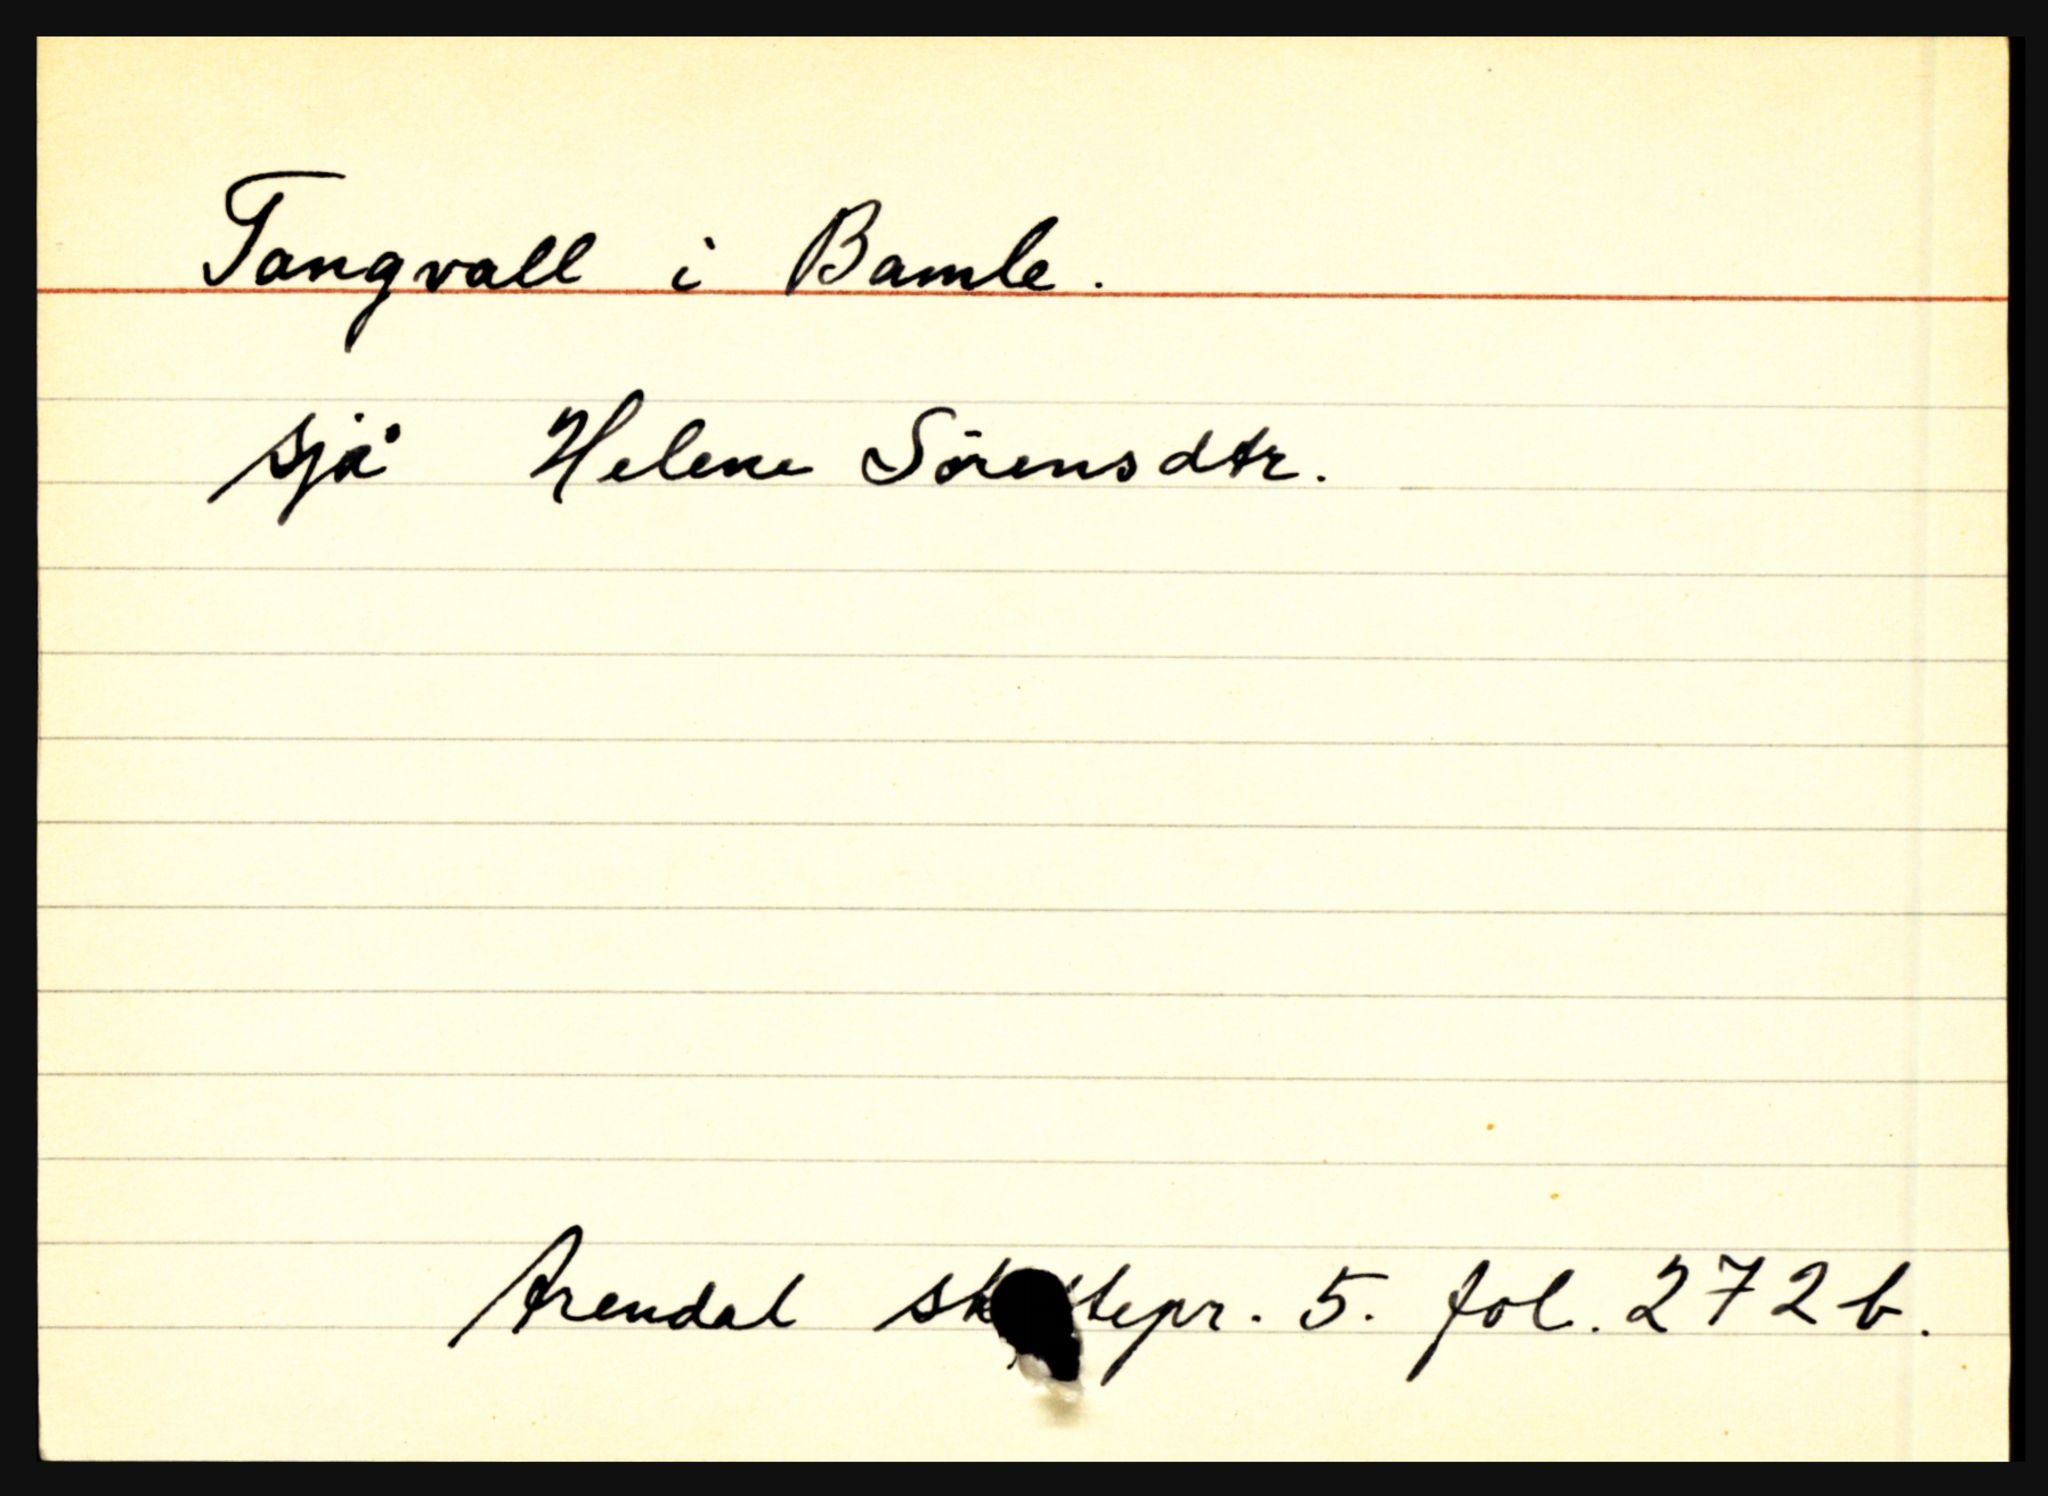 Tangvall i Bamle.
sjå Helene Sörensdtr.
Arendal 5. fol. 272 b.